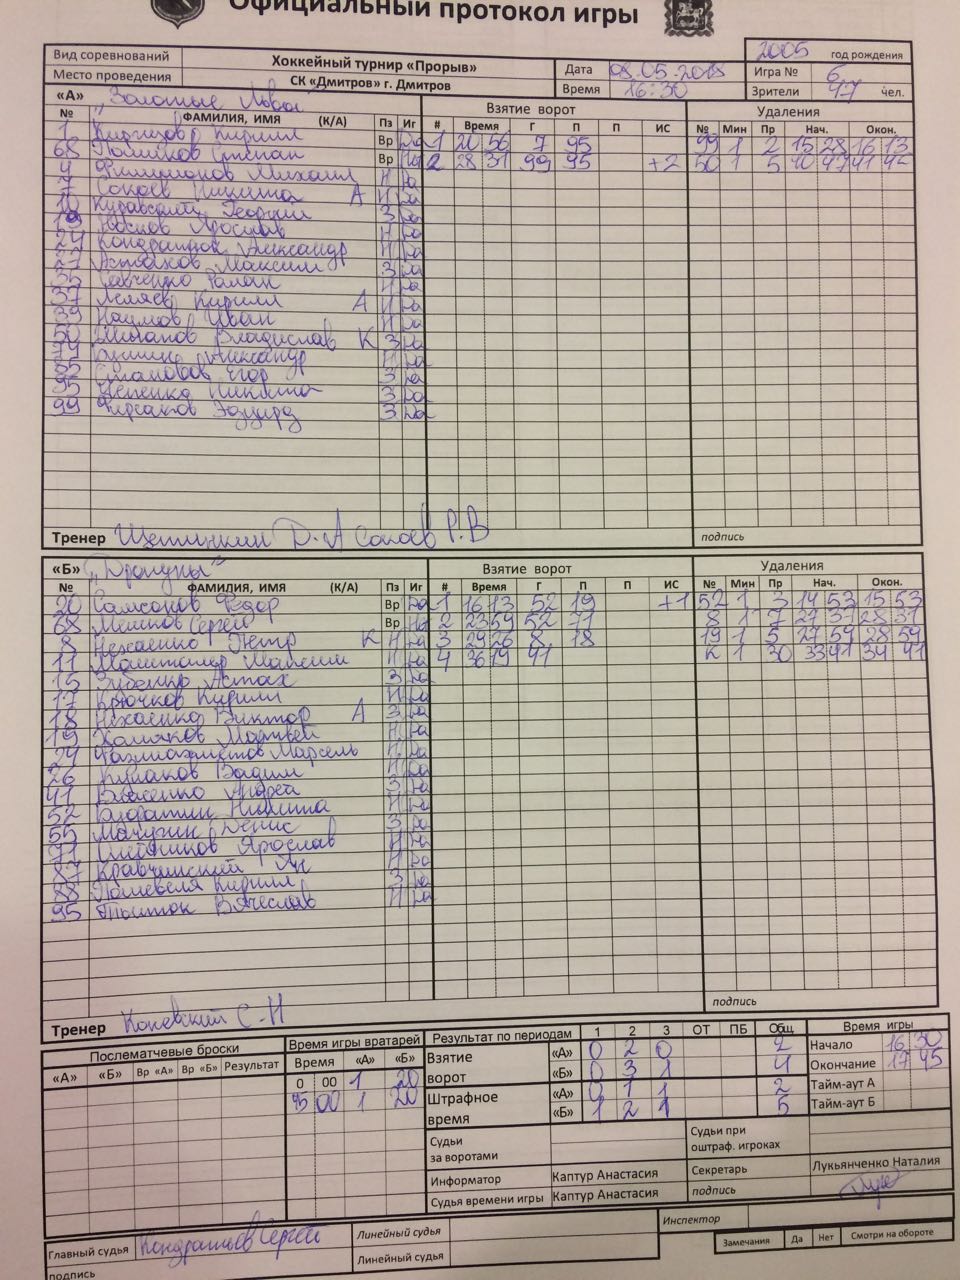 Официальный протокол игры
2005 год рождения
Вид соревнований Хоккейный турнир «Прорыв» Дата 08.05.2018 Игра № 6
Место проведения СК «Дмитров» г. Дмитров Время 16:30 Зрители 47 чел.
«А» "Золотые Львы" Взятие ворот Удаления
№ ФАМИЛИЯ, ИМЯ (К/А) Пз Иг # Время Г П П ИС № Мин Пр Нач. Окон.
1 Кирилл Вр Да 1 20 56 7 95 99 1 2 15 28 16 13
68 Пошиков Степан Вр 2 28 31 99 95 +2 50 1 5 40 47 41
4 Филимонов Михаил Н Да
7 Сокаев Никита А Н Да
10 Георгий З Да
19 Ярослав Н Да
24 Кондратюк Александр Н Да
27 Максим З Да
35 Савченко Роман Н Да
37 Кирилл А Н Да
39 Наумов Иван Н Да
50 Владислав К З Да
Александр Н Да
85 Егор З Да
95 Цепенко Никита З Да
99 Фирсаков Эдуард З Да
Тренер Щетинкин Д.А Сокаев Р.В
подпись
«Б» "Драгуны" Взятие ворот Удаления
№ ФАМИЛИЯ, ИМЯ (К/А) Пз Иг # Время Г П П ИС № Мин Пр Нач. Окон.
20 Самсонов Федор Вр Да 1 16 13 52 19 +1 52 1 3 14 53 15 53
68 Мешков Сергей Вр 2 23 59 52 71 8 1 7 27 31 28 31
8 Нехаенко Петр К Н Да 3 29 26 8 18 19 1 5 27 59 28 59
11 Максим Н Да 4 36 19 41 К 1 30 33 41 34 41
15 Зубенко Астах З Да
17 Крючков Кирилл Н Да
18 Нехаенко Виктор А З Да
19 Хомяков Матвей Н Да
24 Марсель Н Да
26 Вадим Н Да
41 Власенко Андрей З Да
52 Никита Н Да
55 Мачугин Денис З Да
71 Ярослав Н Да
87 Кравчинский Ян Н Да
88 Пошевеля Кирилл З Да
95 Вячеслав Н Да
подпись
Тренер Коневский С.Н
Послематчевые броски Время игры вратарей Результат по периодам 1 2 3 ОТ ПБ Общ Время игры
«А» «Б» Вр «А» Вр «Б» Результат Время «А» «Б» Взятие ворот «А» 0 2 0 2 Начало 16 30
0 00 1 20 «Б» 0 3 1 4 Окончание 17 45
45 00 1 20 Штрафное время «А» 0 1 1 2 Тайм-аут А
«Б» 1 2 1 5 Тайм-аут Б
Судьи за воротами Судьи при оштраф. игроках
Информатор Каптур Анастасия Секретарь Лукьянченко Наталия
Судья времени игры Каптур Анастасия подпись
Главный судья Кондратьев Сергей Линейный судья Инспектор
подпись Линейный судья Замечания Да Нет Смотри на обороте